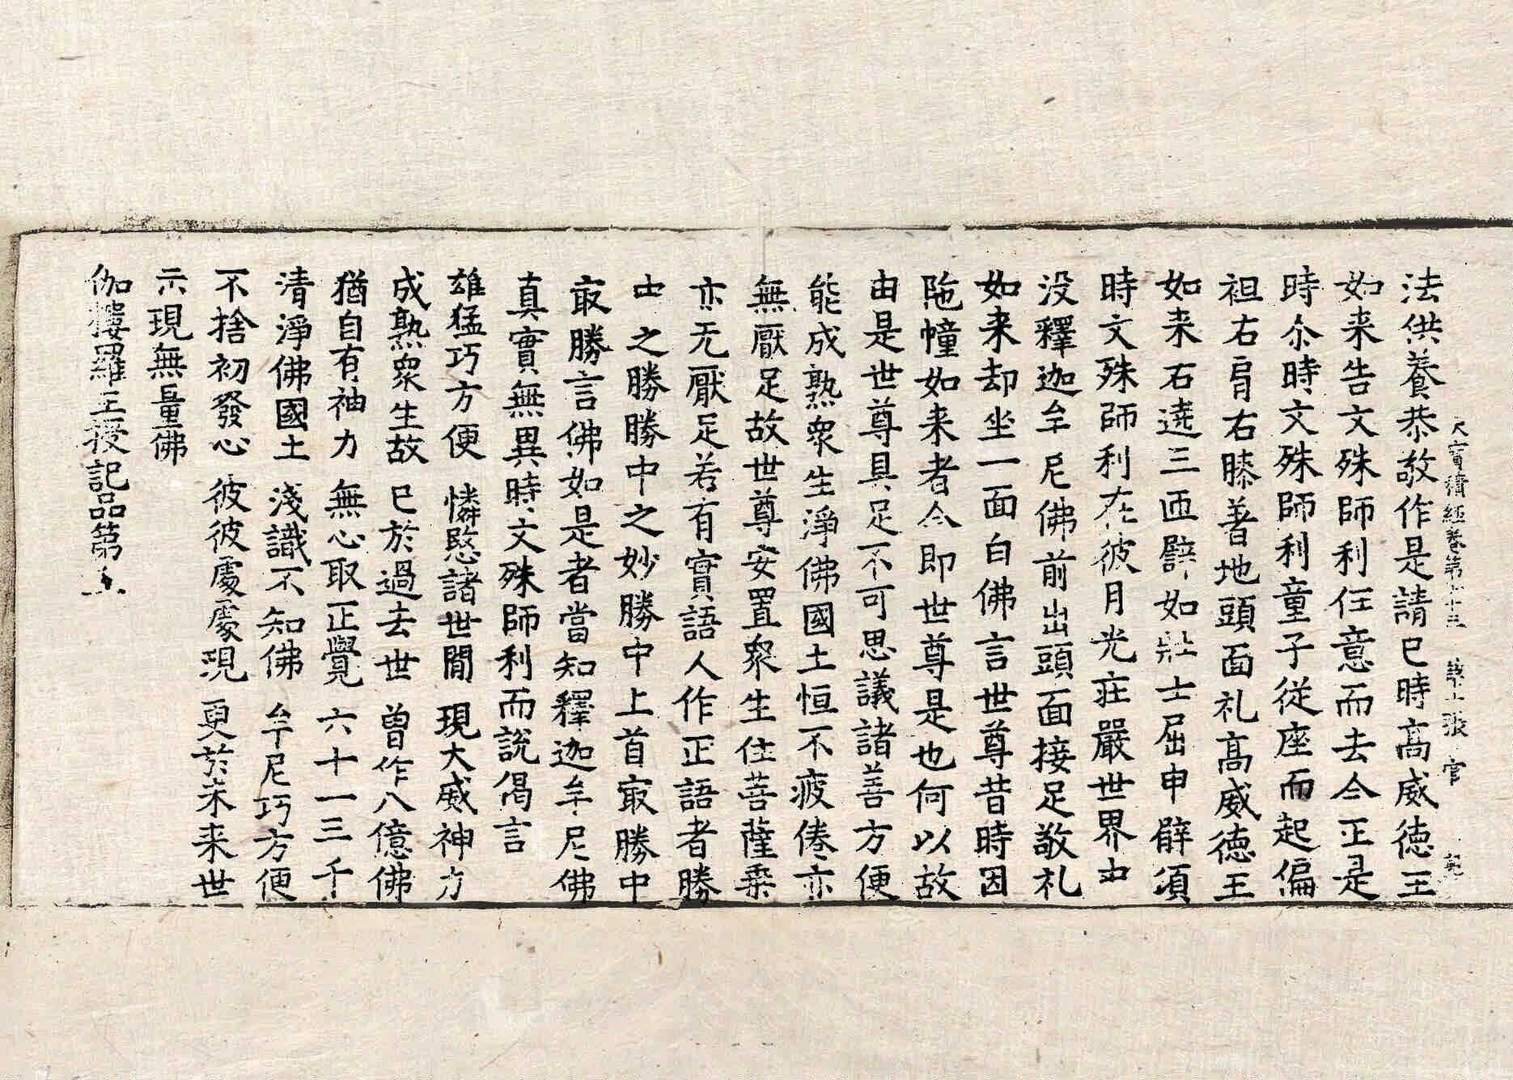 大寶積經卷第六十三 第十張 官
法供養恭敬作是請已時高威德王
如来告文殊師利任意而去今正是
時尒時文殊師利童子從座而起偏
袒右肩右膝著地頭面礼高威德王
如来右遶三匝譬如壯士屈申臂湏
時文殊師利在彼月光莊嚴世界中
没釋迦牟尼佛前出頭面接足敬礼
如来却坐一面白佛言世尊昔時因
陁幢如来者今即世尊是也何以故
由是世尊具足不可思議諸善方便
能成熟衆生淨佛國土恒不疲倦亦
無厭足故世尊安置衆生住菩薩乗
亦无厭足若有實語人作正語者勝
中之勝勝中之妙勝中上首㝡勝中
㝡勝言佛如是者當知釋迦牟尼佛
真實無異時文殊師利而說偈言
雄猛巧方便 憐愍諸世間 現大威神力
成熟衆生故 已於過去世 曽作八億佛
猶自有神力 無心取正覺 六十一三千
清淨佛國土 淺識不知佛 牟尼巧方便
不捨初發心 彼彼處處現 更於未来世
示現無量佛
伽樓羅王授記品第五